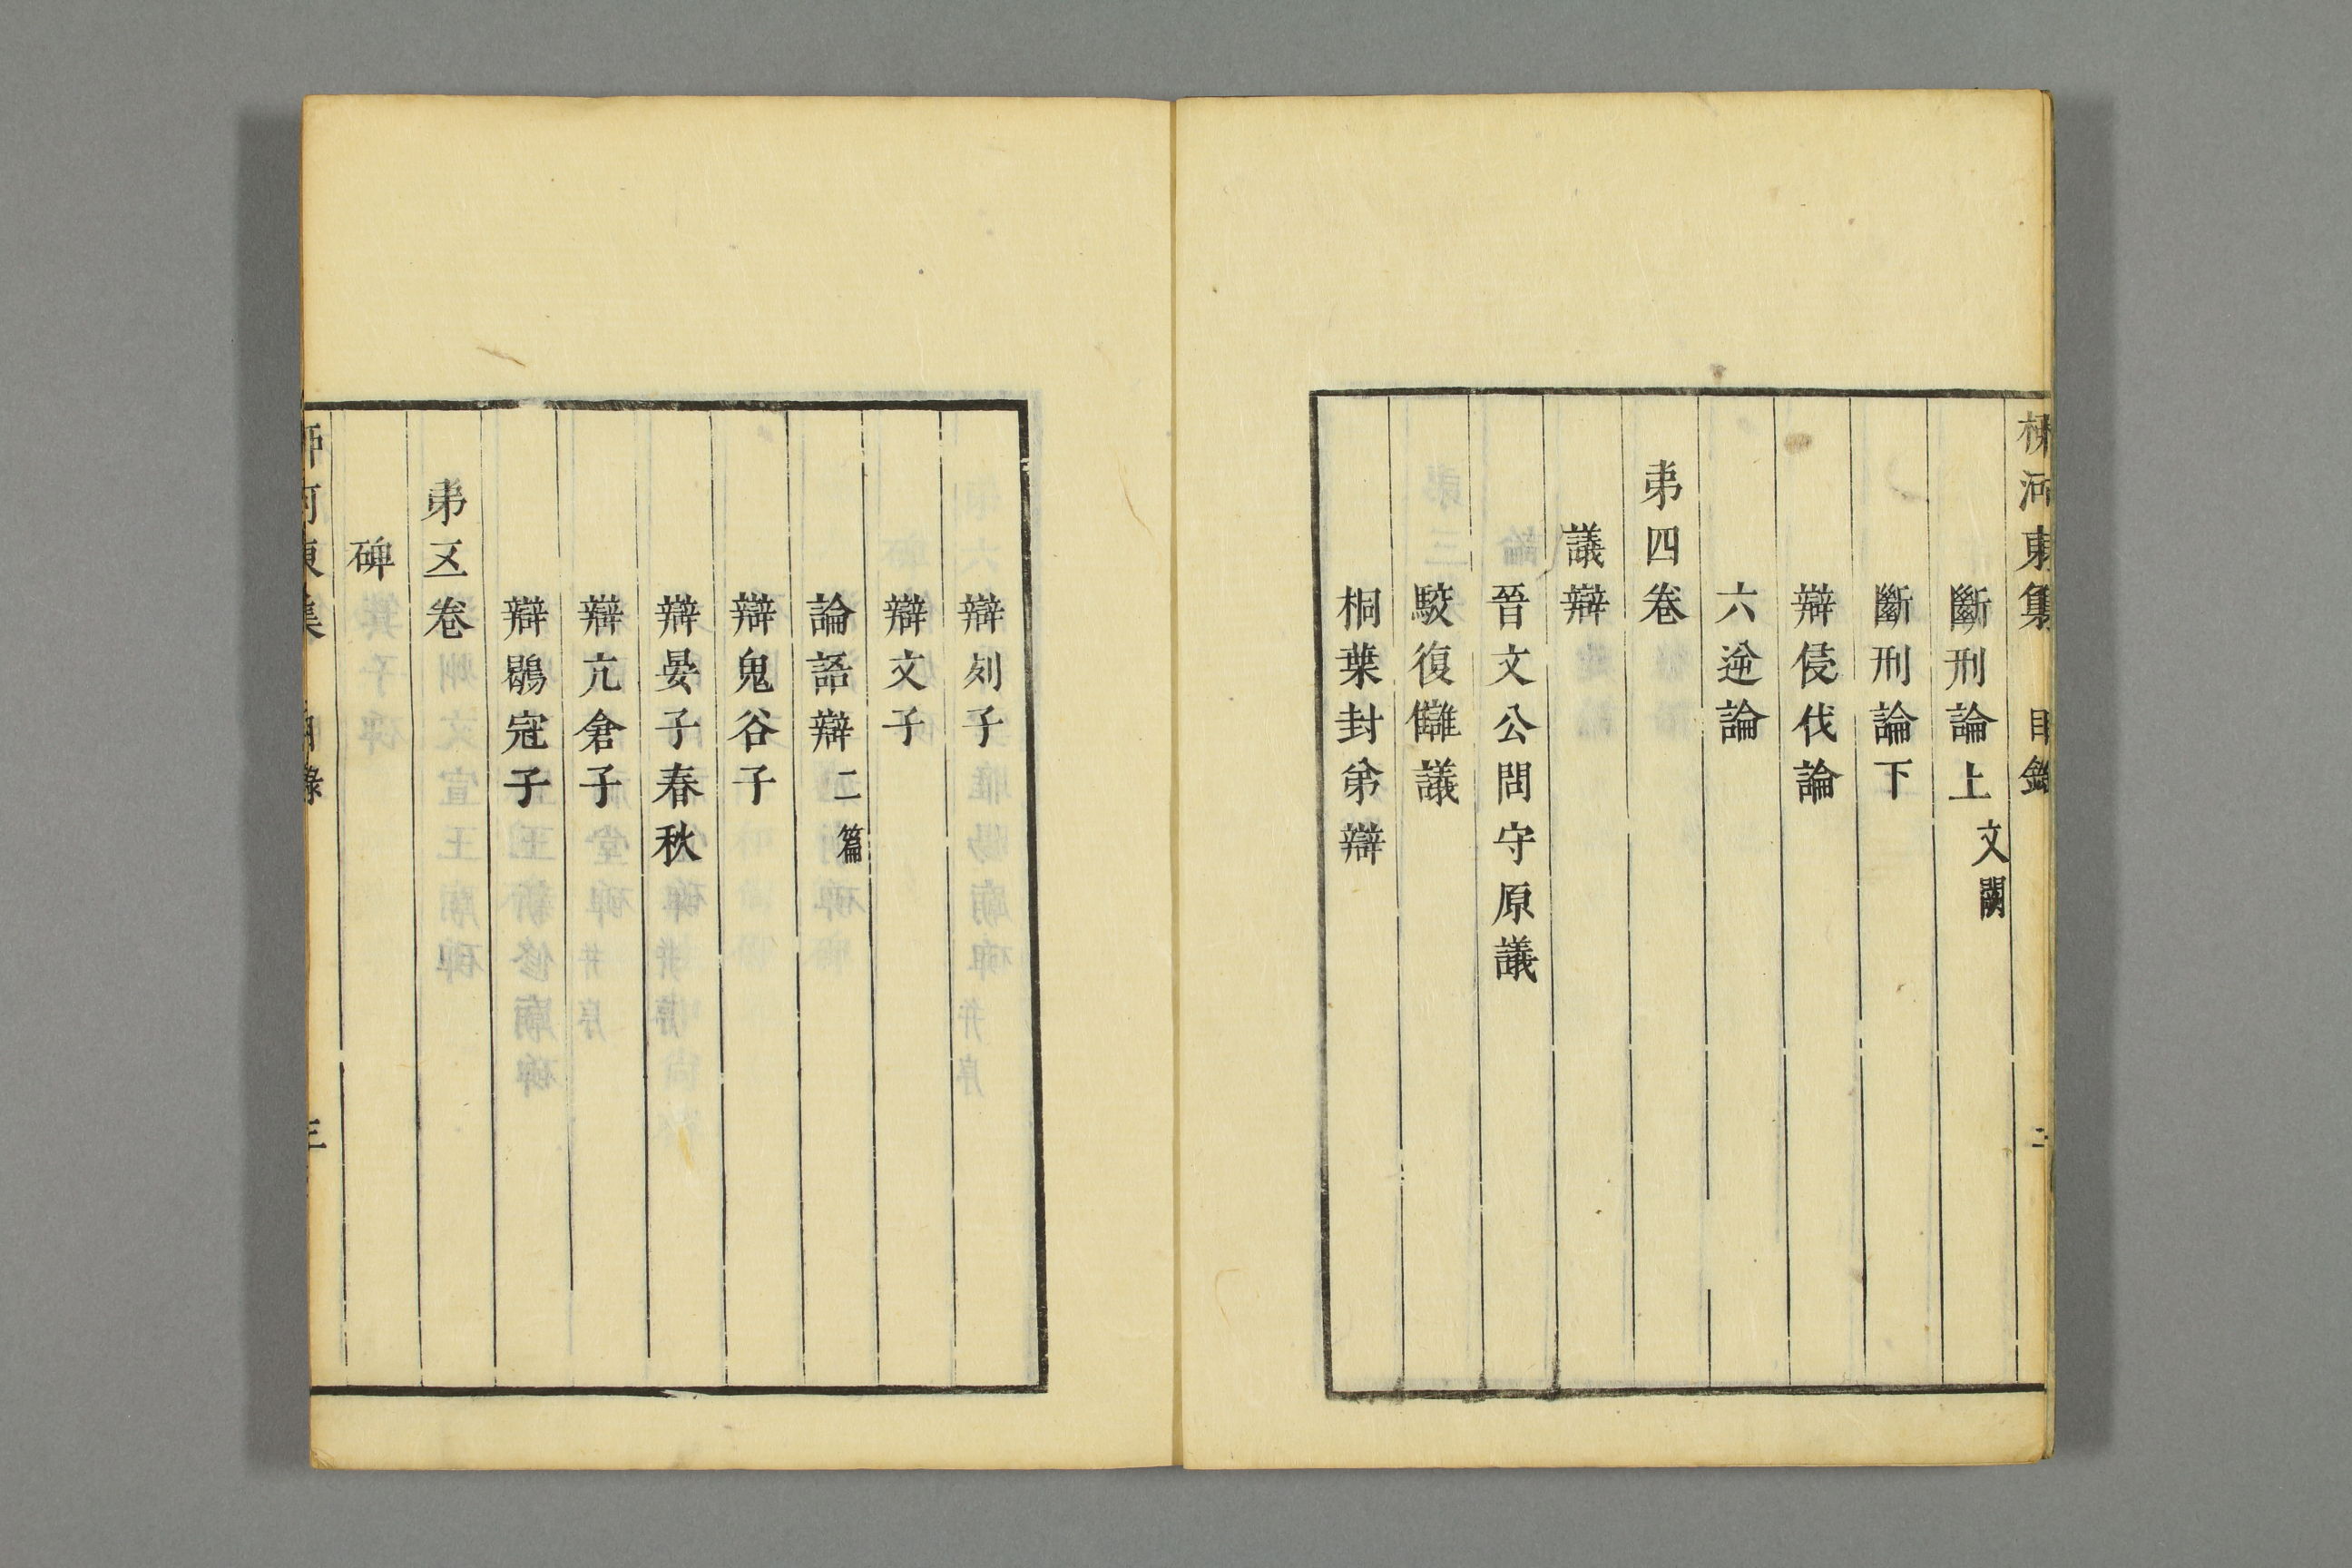 柳河東集　目錄　二
斷刑論上文闕
斷刑論下
辯侵伐論
六逆論
弟四卷
議辯
晉文公問守原議
駮復讎議
桐葉封弟辯
辯列子
辯文子
論語辯二篇
辯鬼谷子
辯晏子春秋
辯亢倉子
辯鶡冠子
弟五卷
碑
柳河東集　目錄　三